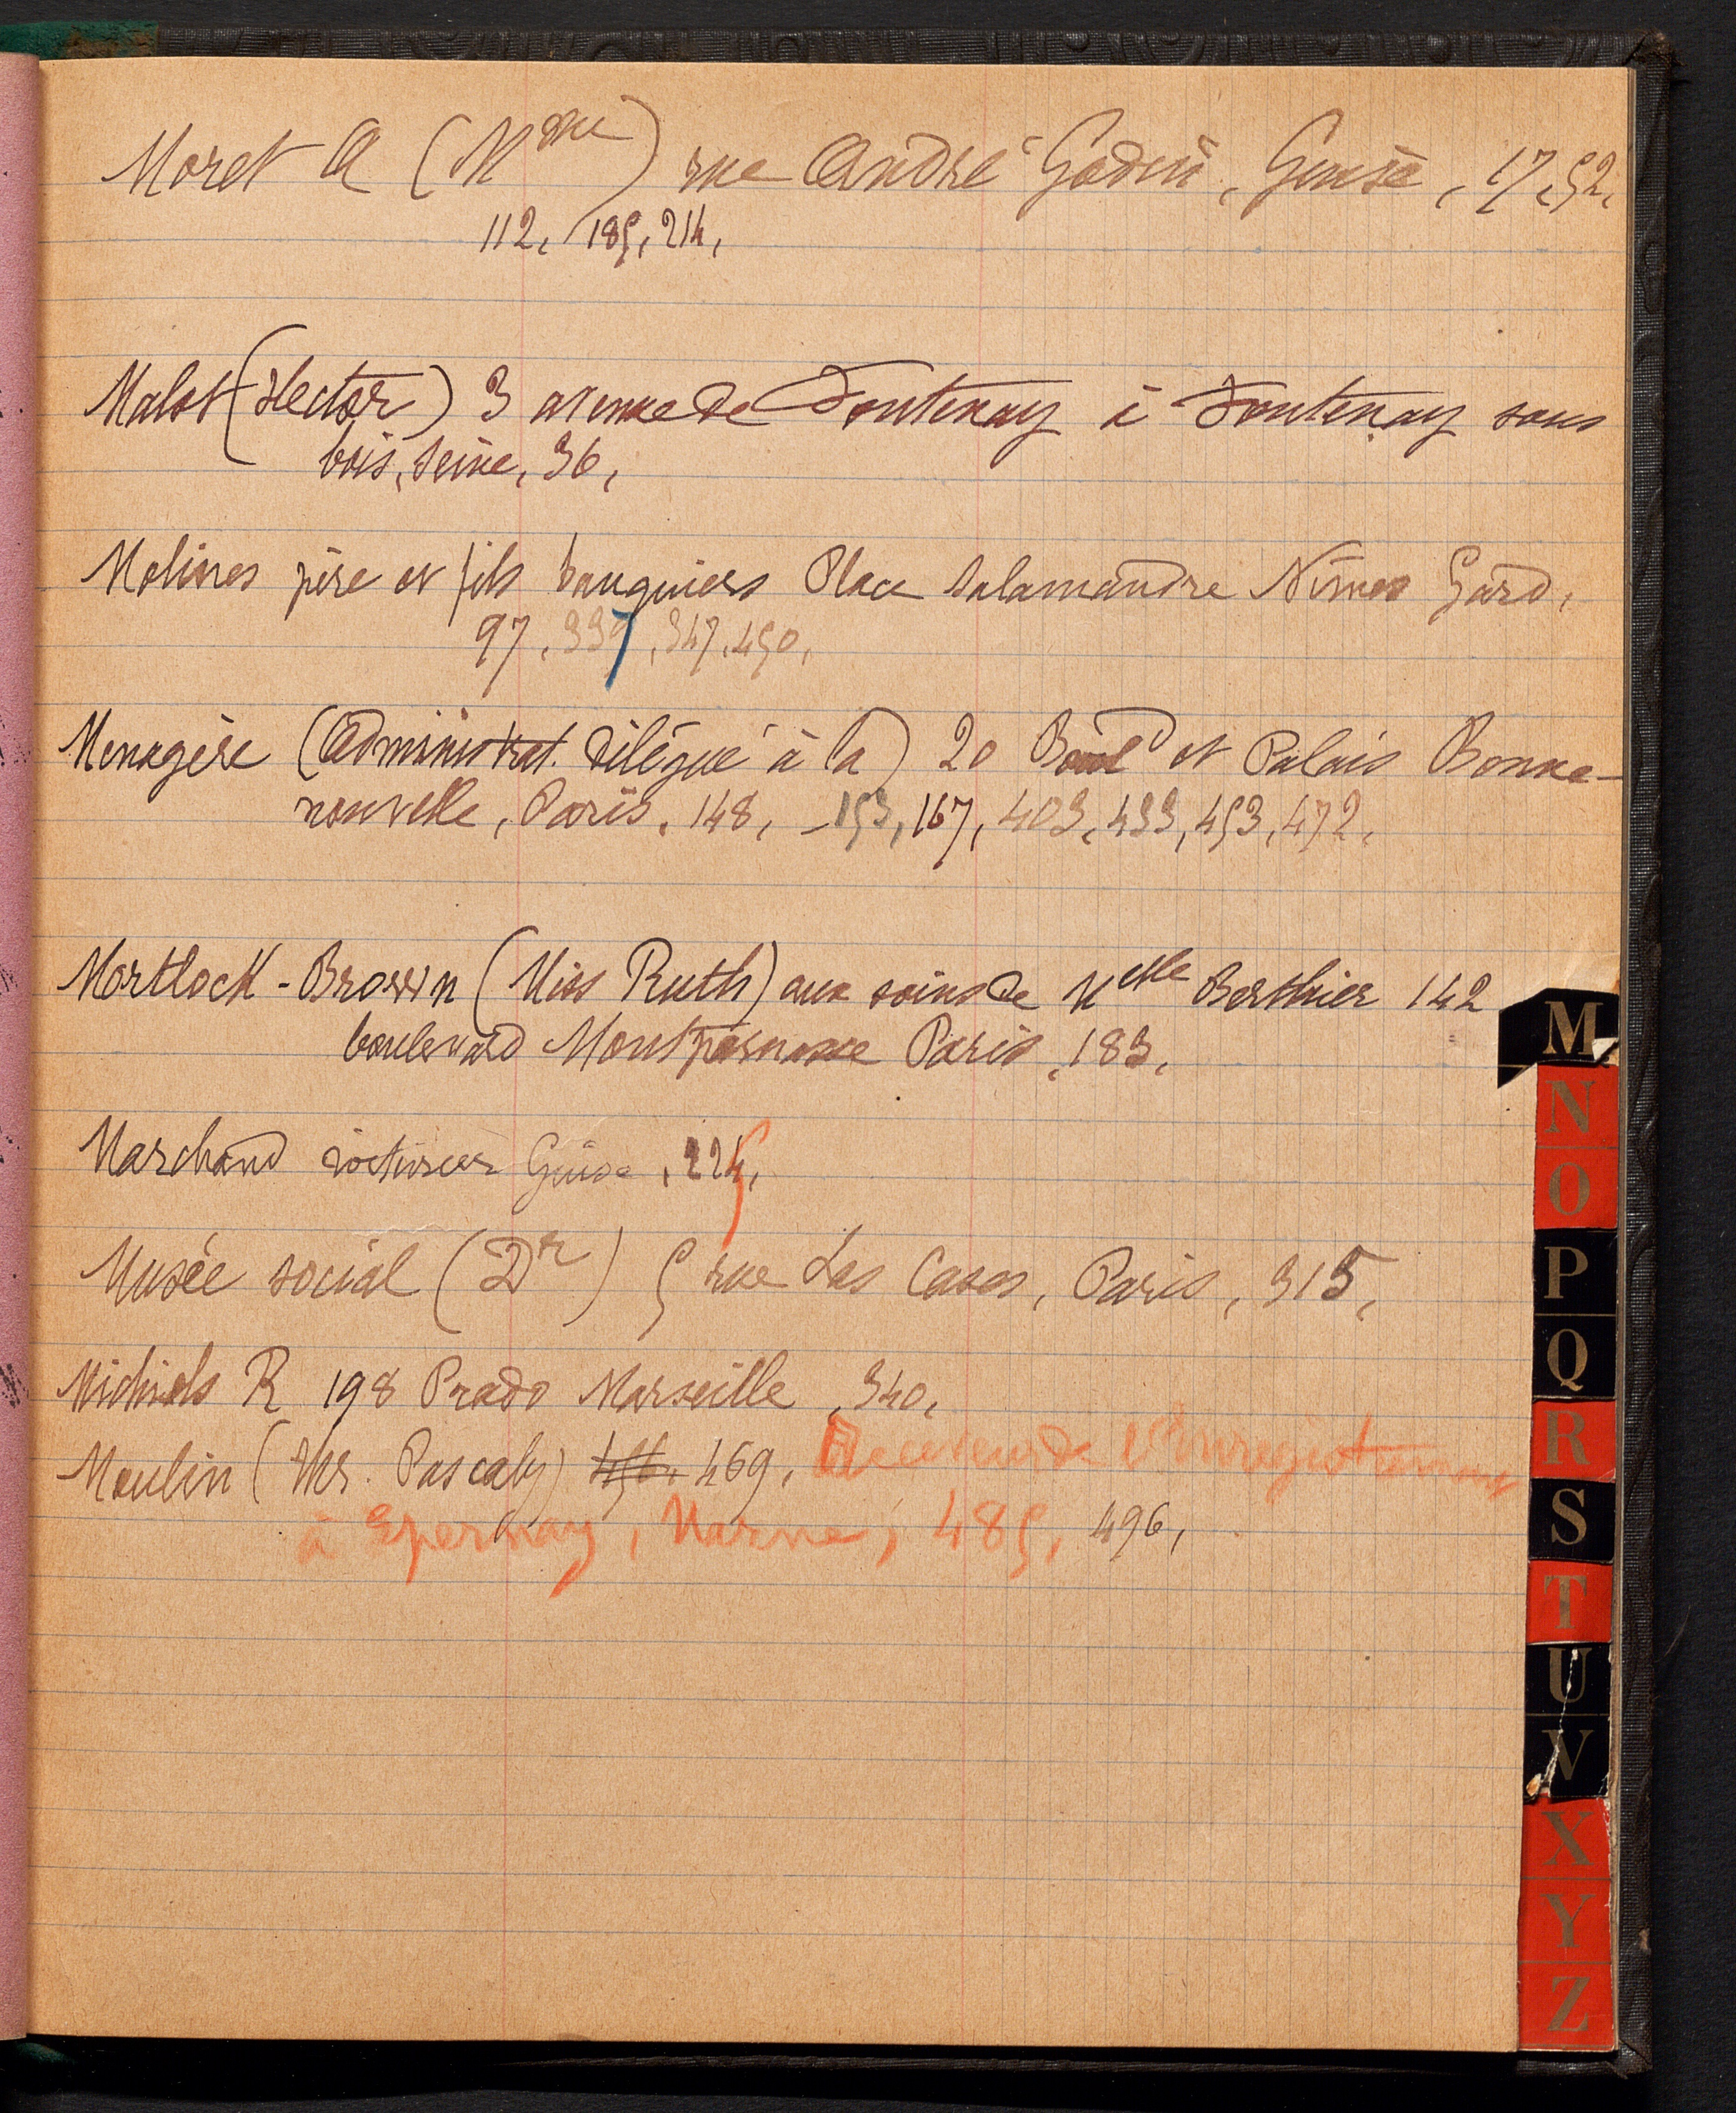 Moret A (Mme) rue André Godin, Guise, 17, 52,
112, 185, 214,
Malot (Hector) 3 avenue de Fontenay à Fontenay sous
bois, Seine, 36,
Molines père et fils banquiers Place Salamandre Nîmes Gard,
97, 337, 347, 450,
Menagère (administrat. délégué à la) 20 Boul et Palais Bonne-
nouvelle, Paris, 148, -153, 167, 403, 433, 453, 472,
Mortlock-Brown (Miss Ruth) aux soins de Melle Berthier 142
boulevard Montparnasse Paris, 183,
Marchand voiturier Guise, 225,
Musée social (Dr) 5 rue Las Cases, Paris, 315,
Michiels R 198 Prado Marseille, 340,
Moulin (Mr. Pascaly) 469, Receveur de l'Enregistrement
à Epernay, Marne, 485, 496,
M
N
O
P
Q
R
S
T
U
V
X
Y
Z